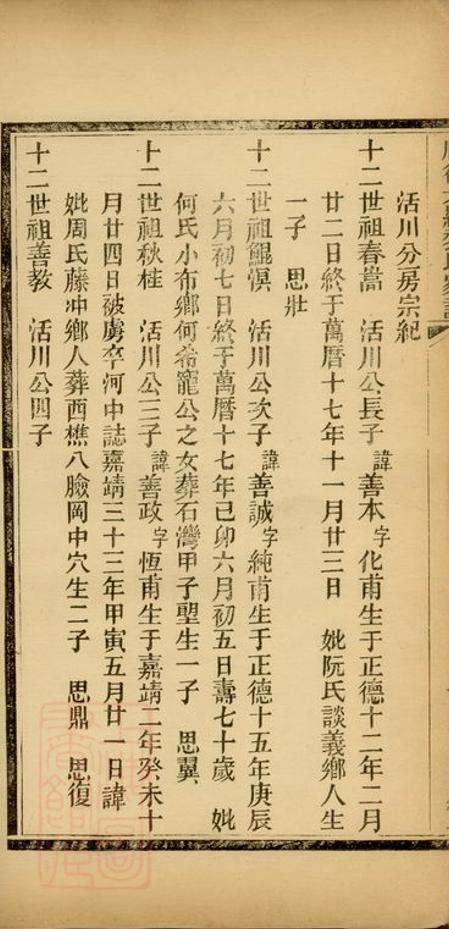 活川分房宗紀
十二世祖春嵩 活川公長子 諱善本 字化甫生于正德十二年二月
廿二日終于萬曆十七年十一月廿三日 妣阮氏談義鄉人生
一子 思壯
十二世祖鯤溟 活川公次子 諱善誠 字純甫生于正德十五年庚辰
六月初七日終于萬曆十七年己卯六月初五日壽七十歲 妣
何氏小布鄉何希寵公之女葬石灣甲子壆生一子 思翼
十二世祖秋桂 活川公三子 諱善政 字恆甫生于嘉靖二年癸未十
月廿四日被虜卒河中誌嘉靖三十三年甲寅五月廿一日諱
妣周氏藤冲鄉人葬西樵八臉岡中穴生二子 思鼎 思復
十二世祖善教 活川公四子